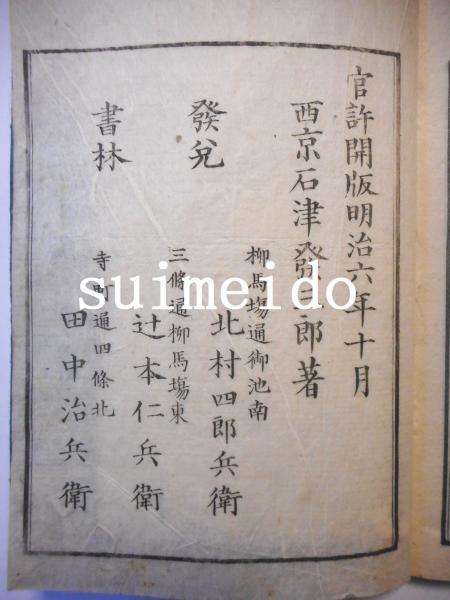 官許開版明治六年十月
西京石津發三郎著
發兌
柳馬塲通御池南
北村四郎兵衛
三條通柳馬塲東
辻本仁兵衛
書林
寺町通四條北
田中治兵衛
suimeido